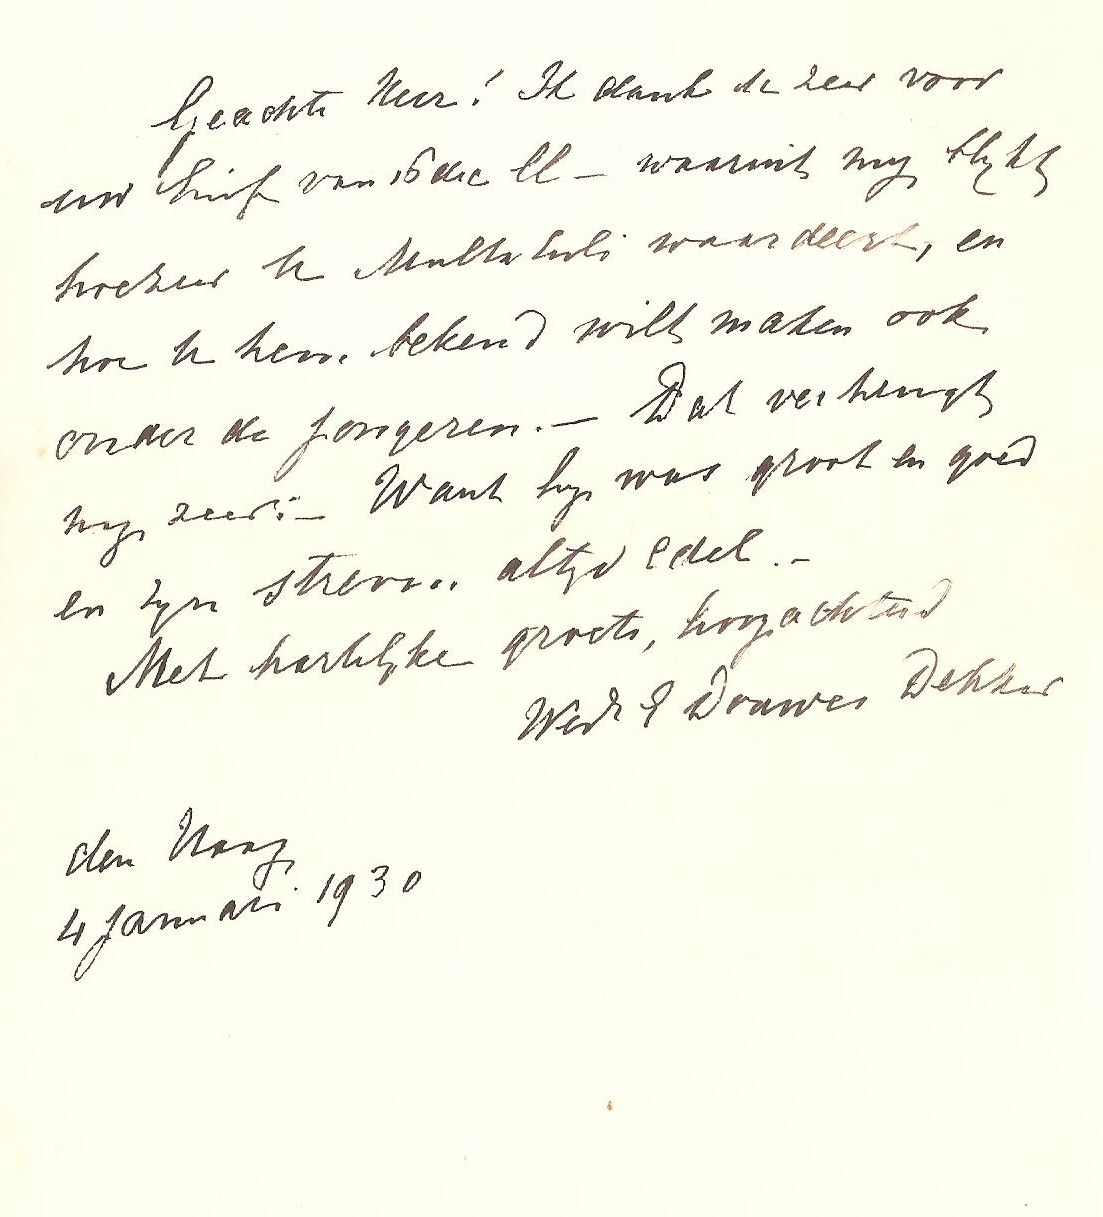 Geachte Heer! Ik dank U zeer voor
uw brief van 15 dec ll – waaruit my blykt
hoezeer U Multatuli waardeert, en
hoe U hem bekend wilt maken ook
onder de jongeren. – Dat verheugt
my zeer: – Want hy was groot en goed
en zyn streven altyd edel. –
Met hartelyke groete, hoogachtend
Wed E Douwes Dekker
den Haag
4 Januari 1930